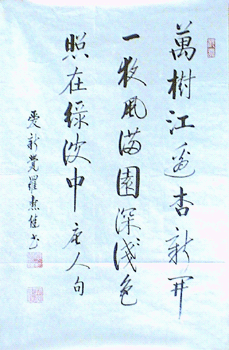 萬樹江邊杏新開
一夜風滿園深淺色
照在綠波中 唐人句
愛新覺羅書